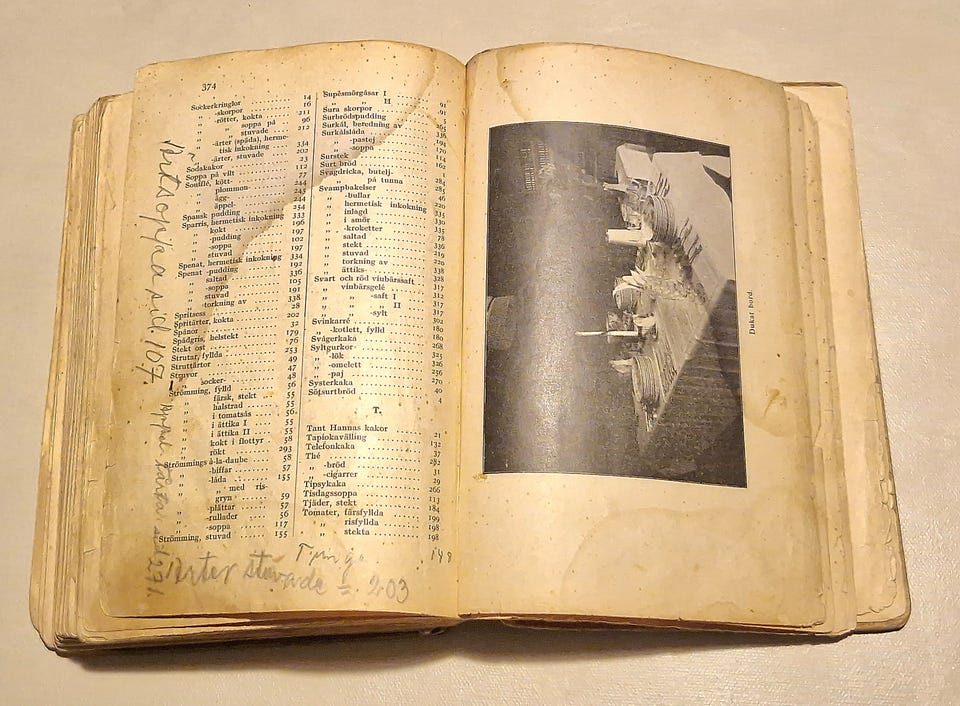 374
Sockerkringlor 14
„ -skorpor 16
„ -rötter, kokta 211
„ „ soppa på 96
„ „ stuvade 212
„ -ärter (späda), herme-
tisk inkokning 334
„ -ärter, stuvade 202
Sodakakor 23
Soppa på vilt 112
Soufflé, kött- 77
„ plommon- 244
„ ägg- 245
„ äppel- 244
Spansk pudding 254
Sparris, hermetisk inkokning 333
„ kokt 196
„ -pudding 197
„ -soppa 102
„ stuvad 197
Spenat, hermetisk inkokning 334
Spenat -pudding 192
„ saltad 336
„ -soppa 105
„ stuvad 191
„ -torkning av 338
Spritsess 28
Spritärter, kokta 202
Spånor 32
Spädgris, helstekt 179
Stekt ost 76
Strutar, fyllda 253
Struttårtor 49
Struvor 47
„ socker- 48
Strömming, fylld 56
„ färsk, stekt 55
„ halstrad 55
„ i tomatsås 56
„ i ättika I 55
„ i ättika II 55
„ kokt i flottyr 58
„ rökt 293
Strömmings à-la-daube 58
„ -biffar 57
„ -låda 155
„ „ med ris-
gryn 59
„ -plättar 57
„ -rullader 56
„ -soppa 117
Strömming, stuvad 155
Supésmörgåsar I 91
„ II 91
Sura skorpor
Surbrödspudding
Surkål, beredning av
Surkålslåda
„ -pastej
„ -soppa
Surstek
Surt bröd
Svagdricka, butelj-
„ på tunna
Svampbakelser
„ -bullar
„ hermetisk inkokning
„ inlagd
„ i smör
„ -kroketter
„ saltad
„ stekt
„ stuvad
„ torkning av
„ ättiks-
Svart och röd vinbärssaft
„ vinbärsgelé
„ „ -saft I
„ „ „ II
„ „ -sylt
Svinkarré
„ -kotlett, fylld
Svågerkaka
Syltgurkor
„ -lök
„ -omelett
„ -paj
Systerkaka
Sötsurtbröd
T.
Tant Hannas kakor 21
Tapiokavälling 132
Telefonkaka 37
Thé 282
„ -bröd 31
„ -cigarrer 29
Tipsykaka 266
Tisdagssoppa 113
Tjäder, stekt 184
Tomater, färsfyllda 199
„ risfyllda 198
„ stekta 198
Ärtsoppa sid. 107.
sid 271
148
Ärter stuvade = 203
Dukat bord.